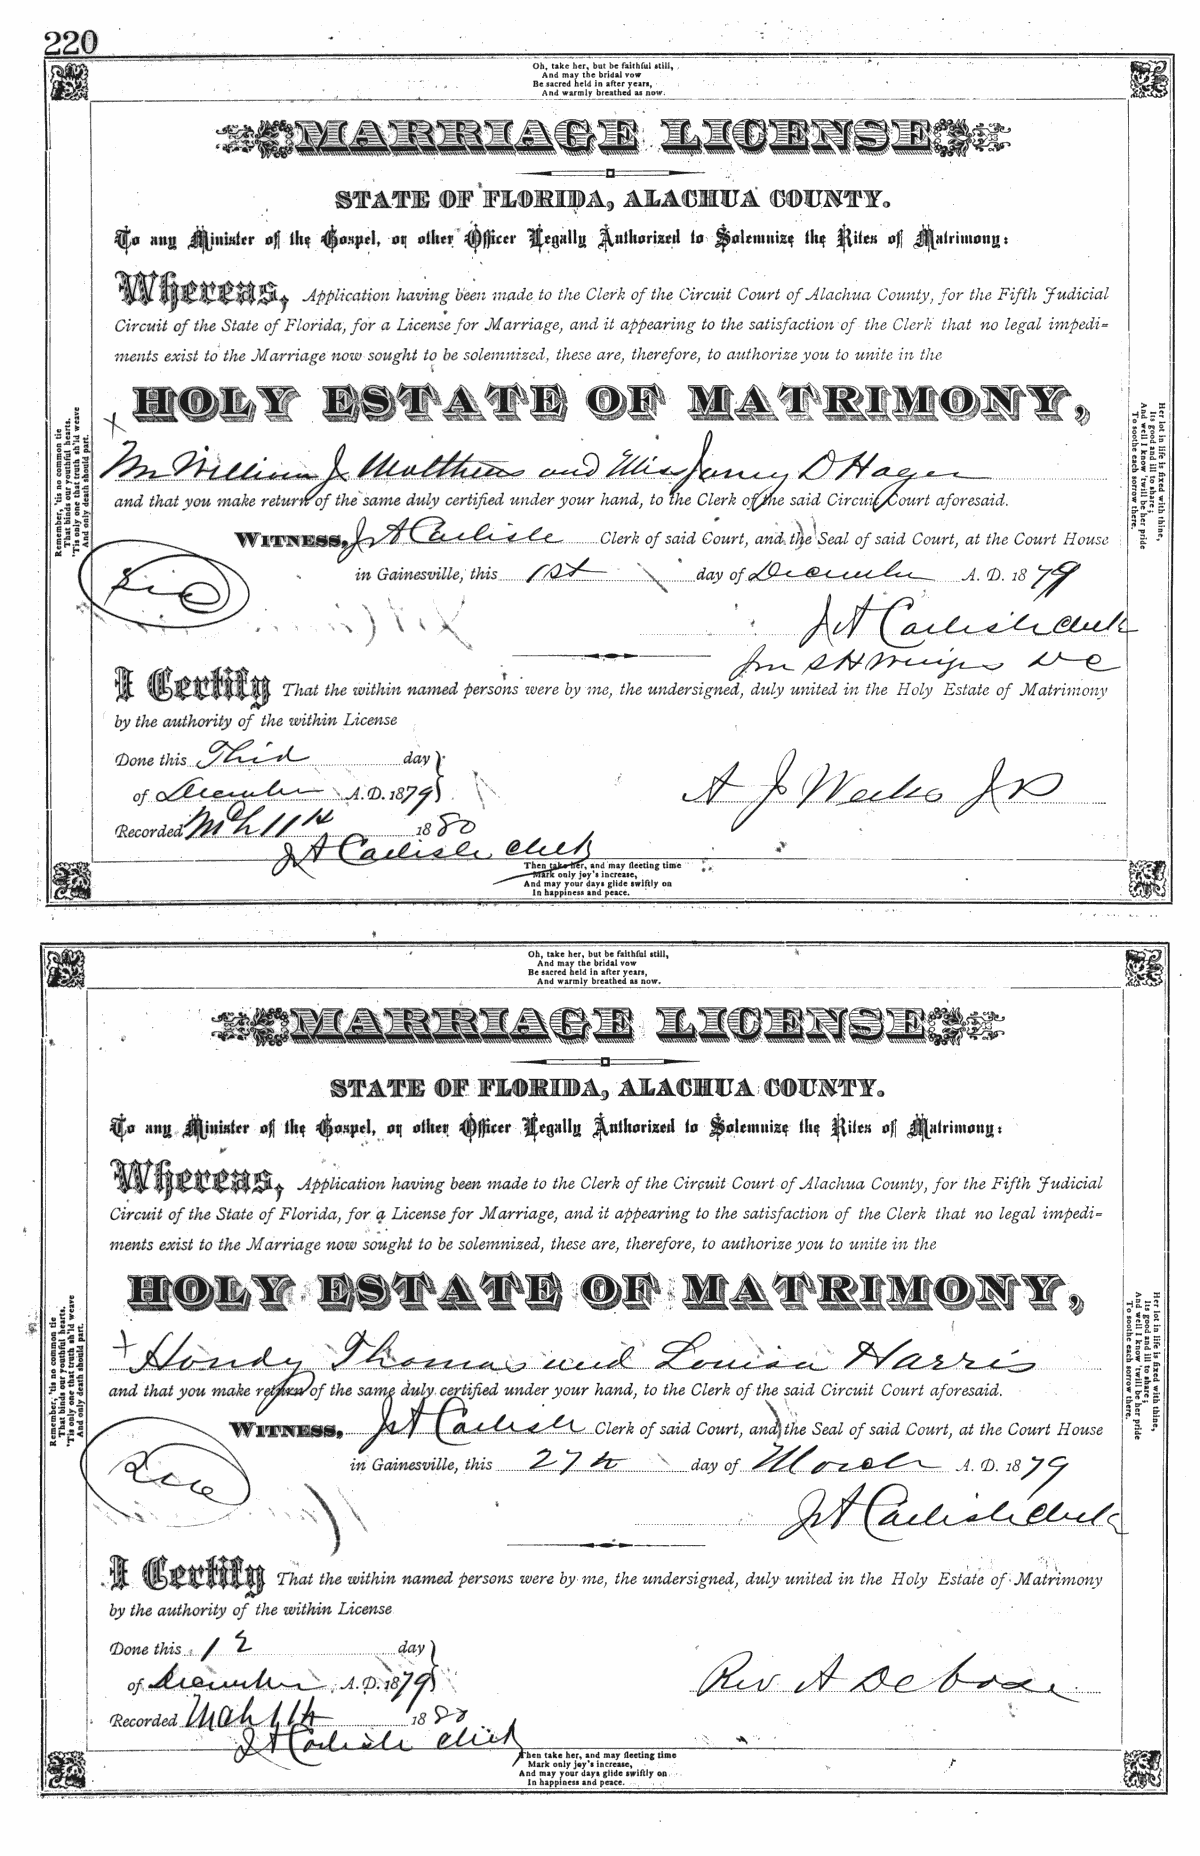 220
Oh, take her, but be faithful still,
And may the bridal vow
Be sacred held in after years,
And warmly breathed as now.
MARRIAGE LICENSE
STATE OF FLORIDA, ALACHUA COUNTY.
To any Minister of the Gospel, or other Officer Legally Authorized to Solemnize the Rites of Matrimony:
Whereas, Application having been made to the Clerk of the Circuit Court of Alachua County, for the Fifth Judicial
Circuit of the State of Florida, for a License for Marriage, and it appearing to the satisfaction of the Clerk that no legal impedi=
ments exist to the Marriage now sought to be solemnized, these are, therefore, to authorize you to unite in the
HOLY ESTATE OF MATRIMONY,
x
Mr William J. Matthews and Miss Janey D Hager
and that you make return of the same duly certified under your hand, to the Clerk of the said Circuit Court aforesaid.
WITNESS, J A Carlisle Clerk of said Court, and the Seal of said Court, at the Court House
in Gainesville, this 1st day of December A. D. 1879
J A Carlisle Clerk
D C
I Certify That the within named persons were by me, the undersigned, duly united in the Holy Estate of Matrimony
by the authority of the within License
Done this Third day
of December A. D. 1879
A J Weeks J P
Recorded Mch 11th 1880
J A Carlisle Clerk
Then take her, and may fleeting time
Mark only joy's increase,
And may your days glide swiftly on
In happiness and peace.
Remember, 'tis no common tie
That binds our youthful hearts,
'Tis only one that truth sh'ld weave
And only death should part.
Her lot in life is fixed with thine,
Its good and ill to share;
And well I know 'twill be her pride
To soothe each sorrow there.
Oh, take her, but be faithful still,
And may the bridal vow
Be sacred held in after years,
And warmly breathed as now.
MARRIAGE LICENSE
STATE OF FLORIDA, ALACHUA COUNTY.
To any Minister of the Gospel, or other Officer Legally Authorized to Solemnize the Rites of Matrimony:
Whereas, Application having been made to the Clerk of the Circuit Court of Alachua County, for the Fifth Judicial
Circuit of the State of Florida, for a License for Marriage, and it appearing to the satisfaction of the Clerk that no legal impedi=
ments exist to the Marriage now sought to be solemnized, these are, therefore, to authorize you to unite in the
HOLY ESTATE OF MATRIMONY,
x Handy Thomas and Louisa Harris
and that you make return of the same duly certified under your hand, to the Clerk of the said Circuit Court aforesaid.
WITNESS, J A Carlisle Clerk of said Court, and the Seal of said Court, at the Court House
in Gainesville, this 27th day of March A. D. 1879
J A Carlisle Clerk
I Certify That the within named persons were by me, the undersigned, duly united in the Holy Estate of Matrimony
by the authority of the within License
Done this 12 day
of December A. D. 1879
Rev A Debose
Recorded Mch 11th 1880
J A Carlisle Clerk
Then take her, and may fleeting time
Mark only joy's increase,
And may your days glide swiftly on
In happiness and peace.
Remember, 'tis no common tie
That binds our youthful hearts,
'Tis only one that truth sh'ld weave
And only death should part.
Her lot in life is fixed with thine,
Its good and ill to share;
And well I know 'twill be her pride
To soothe each sorrow there.